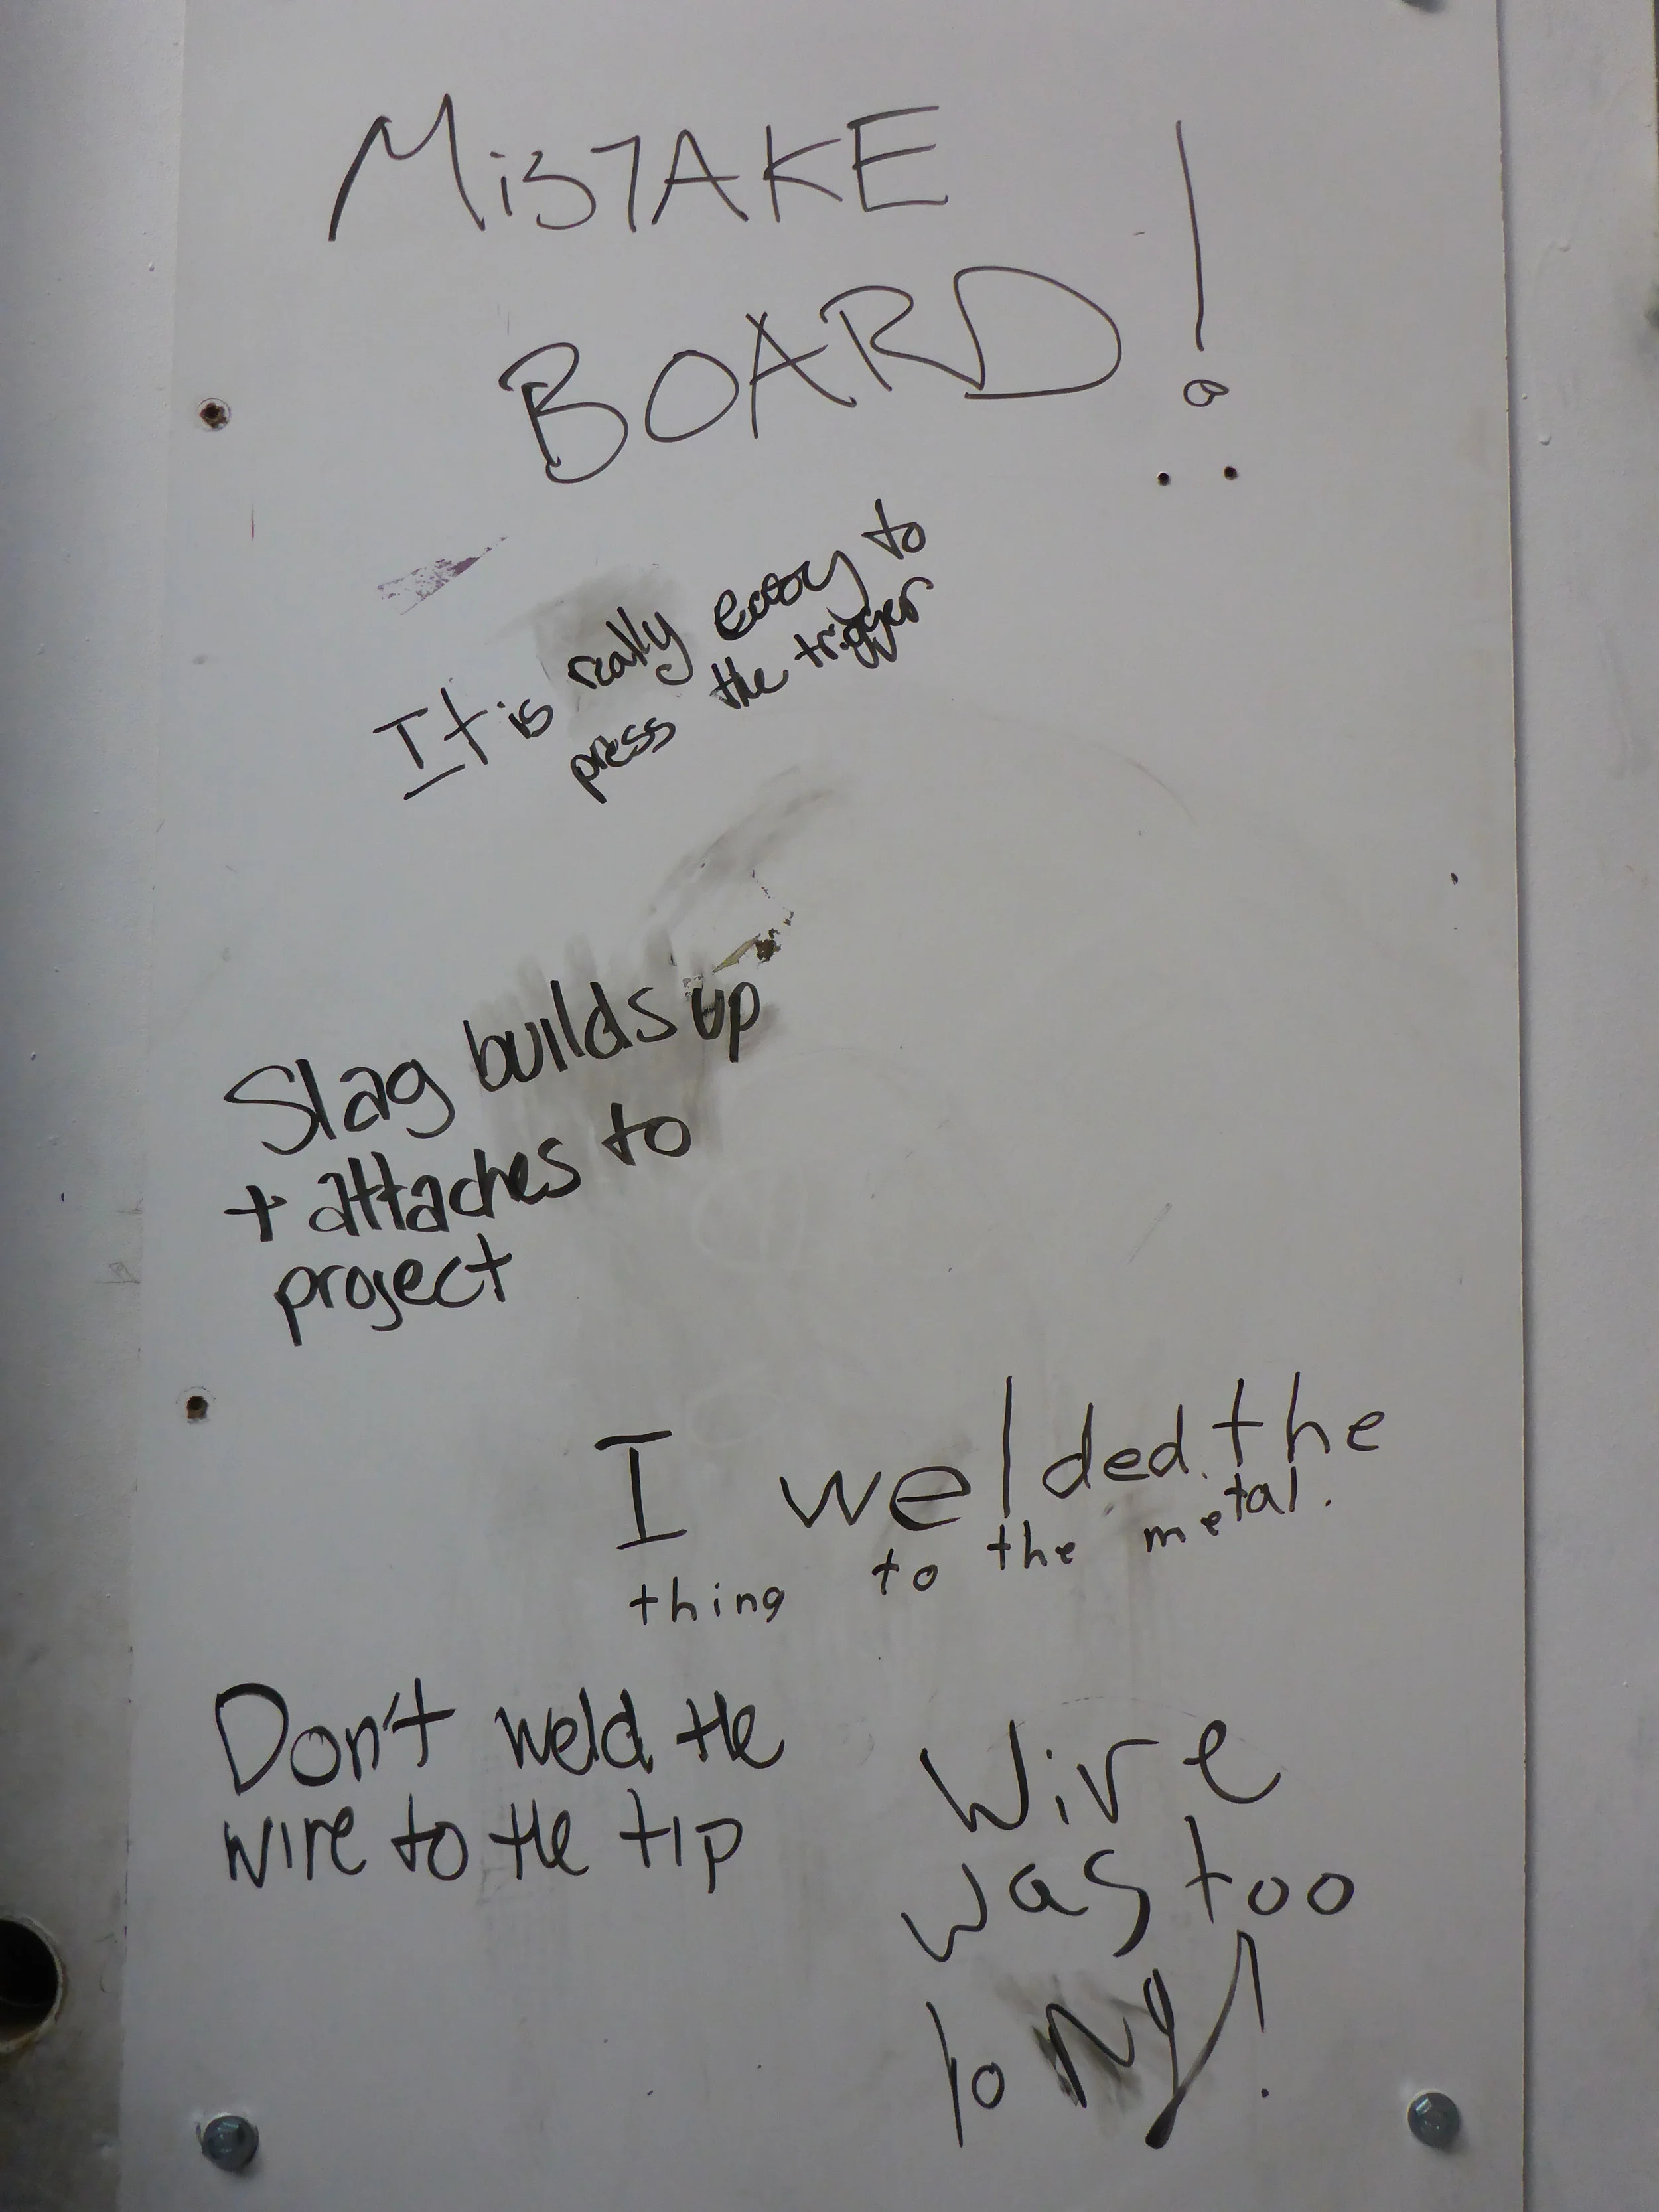 MiSTAKE
BOARD!
It is really easy to
press the trigger
Slag builds up
+ attaches to
project
I welded the
thing to the metal.
Don't weld the
wire to the tip
Wire
was too
loNg!